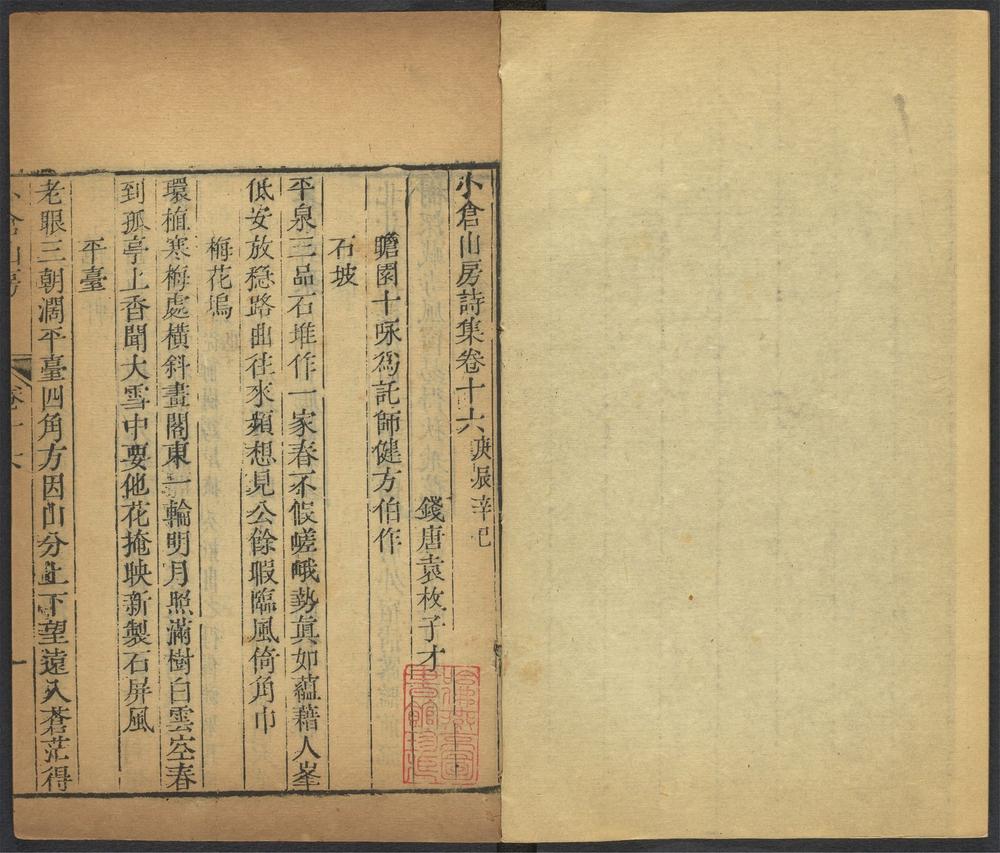 小倉山房詩集卷十六庚辰辛巳
錢唐袁枚子才
瞻園十咏為託師健方伯作
石坡
平泉三品石堆作一家春不假嵯峨勢真如蘊藉人峯
低安放稳路曲往來頻想見公餘暇臨風倚角巾
梅花塢
環植寒梅處橫斜畫閣東一輪明月照滿樹白雲空春
到孤亭上香聞大雪中要他花掩映新製石屏風
平臺
老眼三朝濶平臺四角方因山分上下望遠入蒼茫得
小倉山房
卷十六
一
哈佛大學
書館珍藏